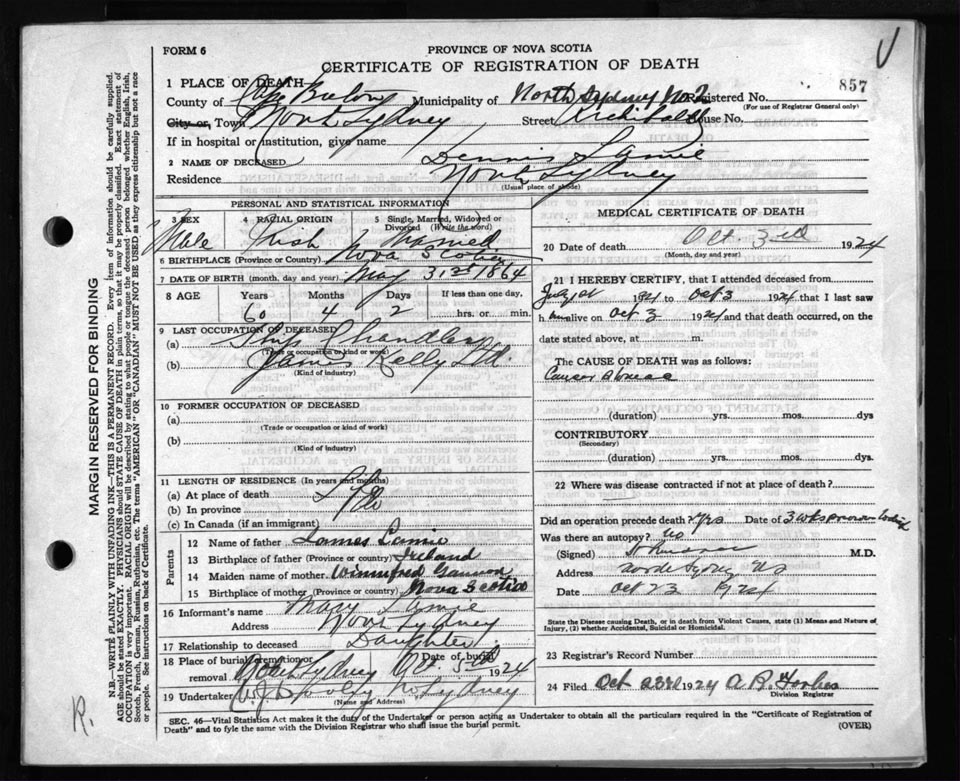 FORM 6
PROVINCE OF NOVA SCOTIA
CERTIFICATE OF REGISTRATION OF DEATH
857
1 PLACE OF DEATH
County of Cape Breton Municipality of North Sydney No. 2 Registered No.
(For use of Registrar General only)
City or Town North Sydney Street Archibald House No.
If in hospital or institution, give name
2 NAME OF DECEASED Dennis Lamie
Residence North Sydney
(Usual place of abode)
PERSONAL AND STATISTICAL INFORMATION
3 SEX 4 RACIAL ORIGIN 5 Single, Married, Widowed or Divorced (Write the word)
Male Irish Married
6 BIRTHPLACE (Province or Country) Nova Scotia
7 DATE OF BIRTH (month, day and year) May 31st 1864
8 AGE Years Months Days If less than one day,
60 4 2 hrs. or min.
9 LAST OCCUPATION OF DECEASED
(a) Ship Chandler
(Trade or occupation or kind of work)
(b) James Kelly Ltd.
(Kind of industry)
10 FORMER OCCUPATION OF DECEASED
(a)
(Trade or occupation or kind of work)
(b)
(Kind of industry)
11 LENGTH OF RESIDENCE (In years and months)
(a) At place of death Life
(b) In province
(c) In Canada (if an immigrant)
Parents
12 Name of father James Lamie
13 Birthplace of father (Province or country) Ireland
14 Maiden name of mother Winnifred Gannon
15 Birthplace of mother (Province or country) Nova Scotia
16 Informant's name Mary Lamie
Address North Sydney
17 Relationship to deceased Daughter
18 Place of burial, cremation or removal North Sydney Date of burial Oct. 5th 1924
19 Undertaker W. J. Dooley N. Sydney
(Name and Address)
MEDICAL CERTIFICATE OF DEATH
20 Date of death Oct. 3rd 1924
(Month, day and year)
21 I HEREBY CERTIFY, that I attended deceased from
July 1924 to Oct 3 1924 that I last saw
h im alive on Oct 3 1924 and that death occurred, on the
date stated above, at m.
The CAUSE OF DEATH was as follows:
Cancer
(duration) yrs. mos. dys
CONTRIBUTORY
(Secondary)
(duration) yrs. mos. dys
22 Where was disease contracted if not at place of death?
Did an operation precede death? yes Date of 3 wks
Was there an autopsy? No
(Signed) M.D.
Address North Sydney NS
Date Oct 23 1924
State the Disease causing Death, or in death from Violent Causes, state (1) Means and Nature of
Injury, (2) whether Accidental, Suicidal or Homicidal.
23 Registrar's Record Number
24 Filed Oct 23rd 1924 A. R. Forbes
Division Registrar
SEC. 46—Vital Statistics Act makes it the duty of the Undertaker or person acting as Undertaker to obtain all the particulars required in the "Certificate of Registration of
Death" and to fyle the same with the Division Registrar who shall issue the burial permit.
(OVER)
MARGIN RESERVED FOR BINDING
N.B.—WRITE PLAINLY WITH UNFADING INK—THIS IS A PERMANENT RECORD. Every item of information should be carefully supplied.
AGE should be stated EXACTLY. PHYSICIANS should STATE CAUSE OF DEATH in plain terms, so that it may be properly classified. Exact statement of
OCCUPATION is very important. RACIAL ORIGIN will be described by stating to what people or tongue the deceased person belonged whether English, Irish,
Scotch, French, German, Russian, Ruthenian, etc. The terms "AMERICAN" OR "CANADIAN" MUST NOT BE USED as they express citizenship but not a race
or people. See instructions on back of Certificate.
R.